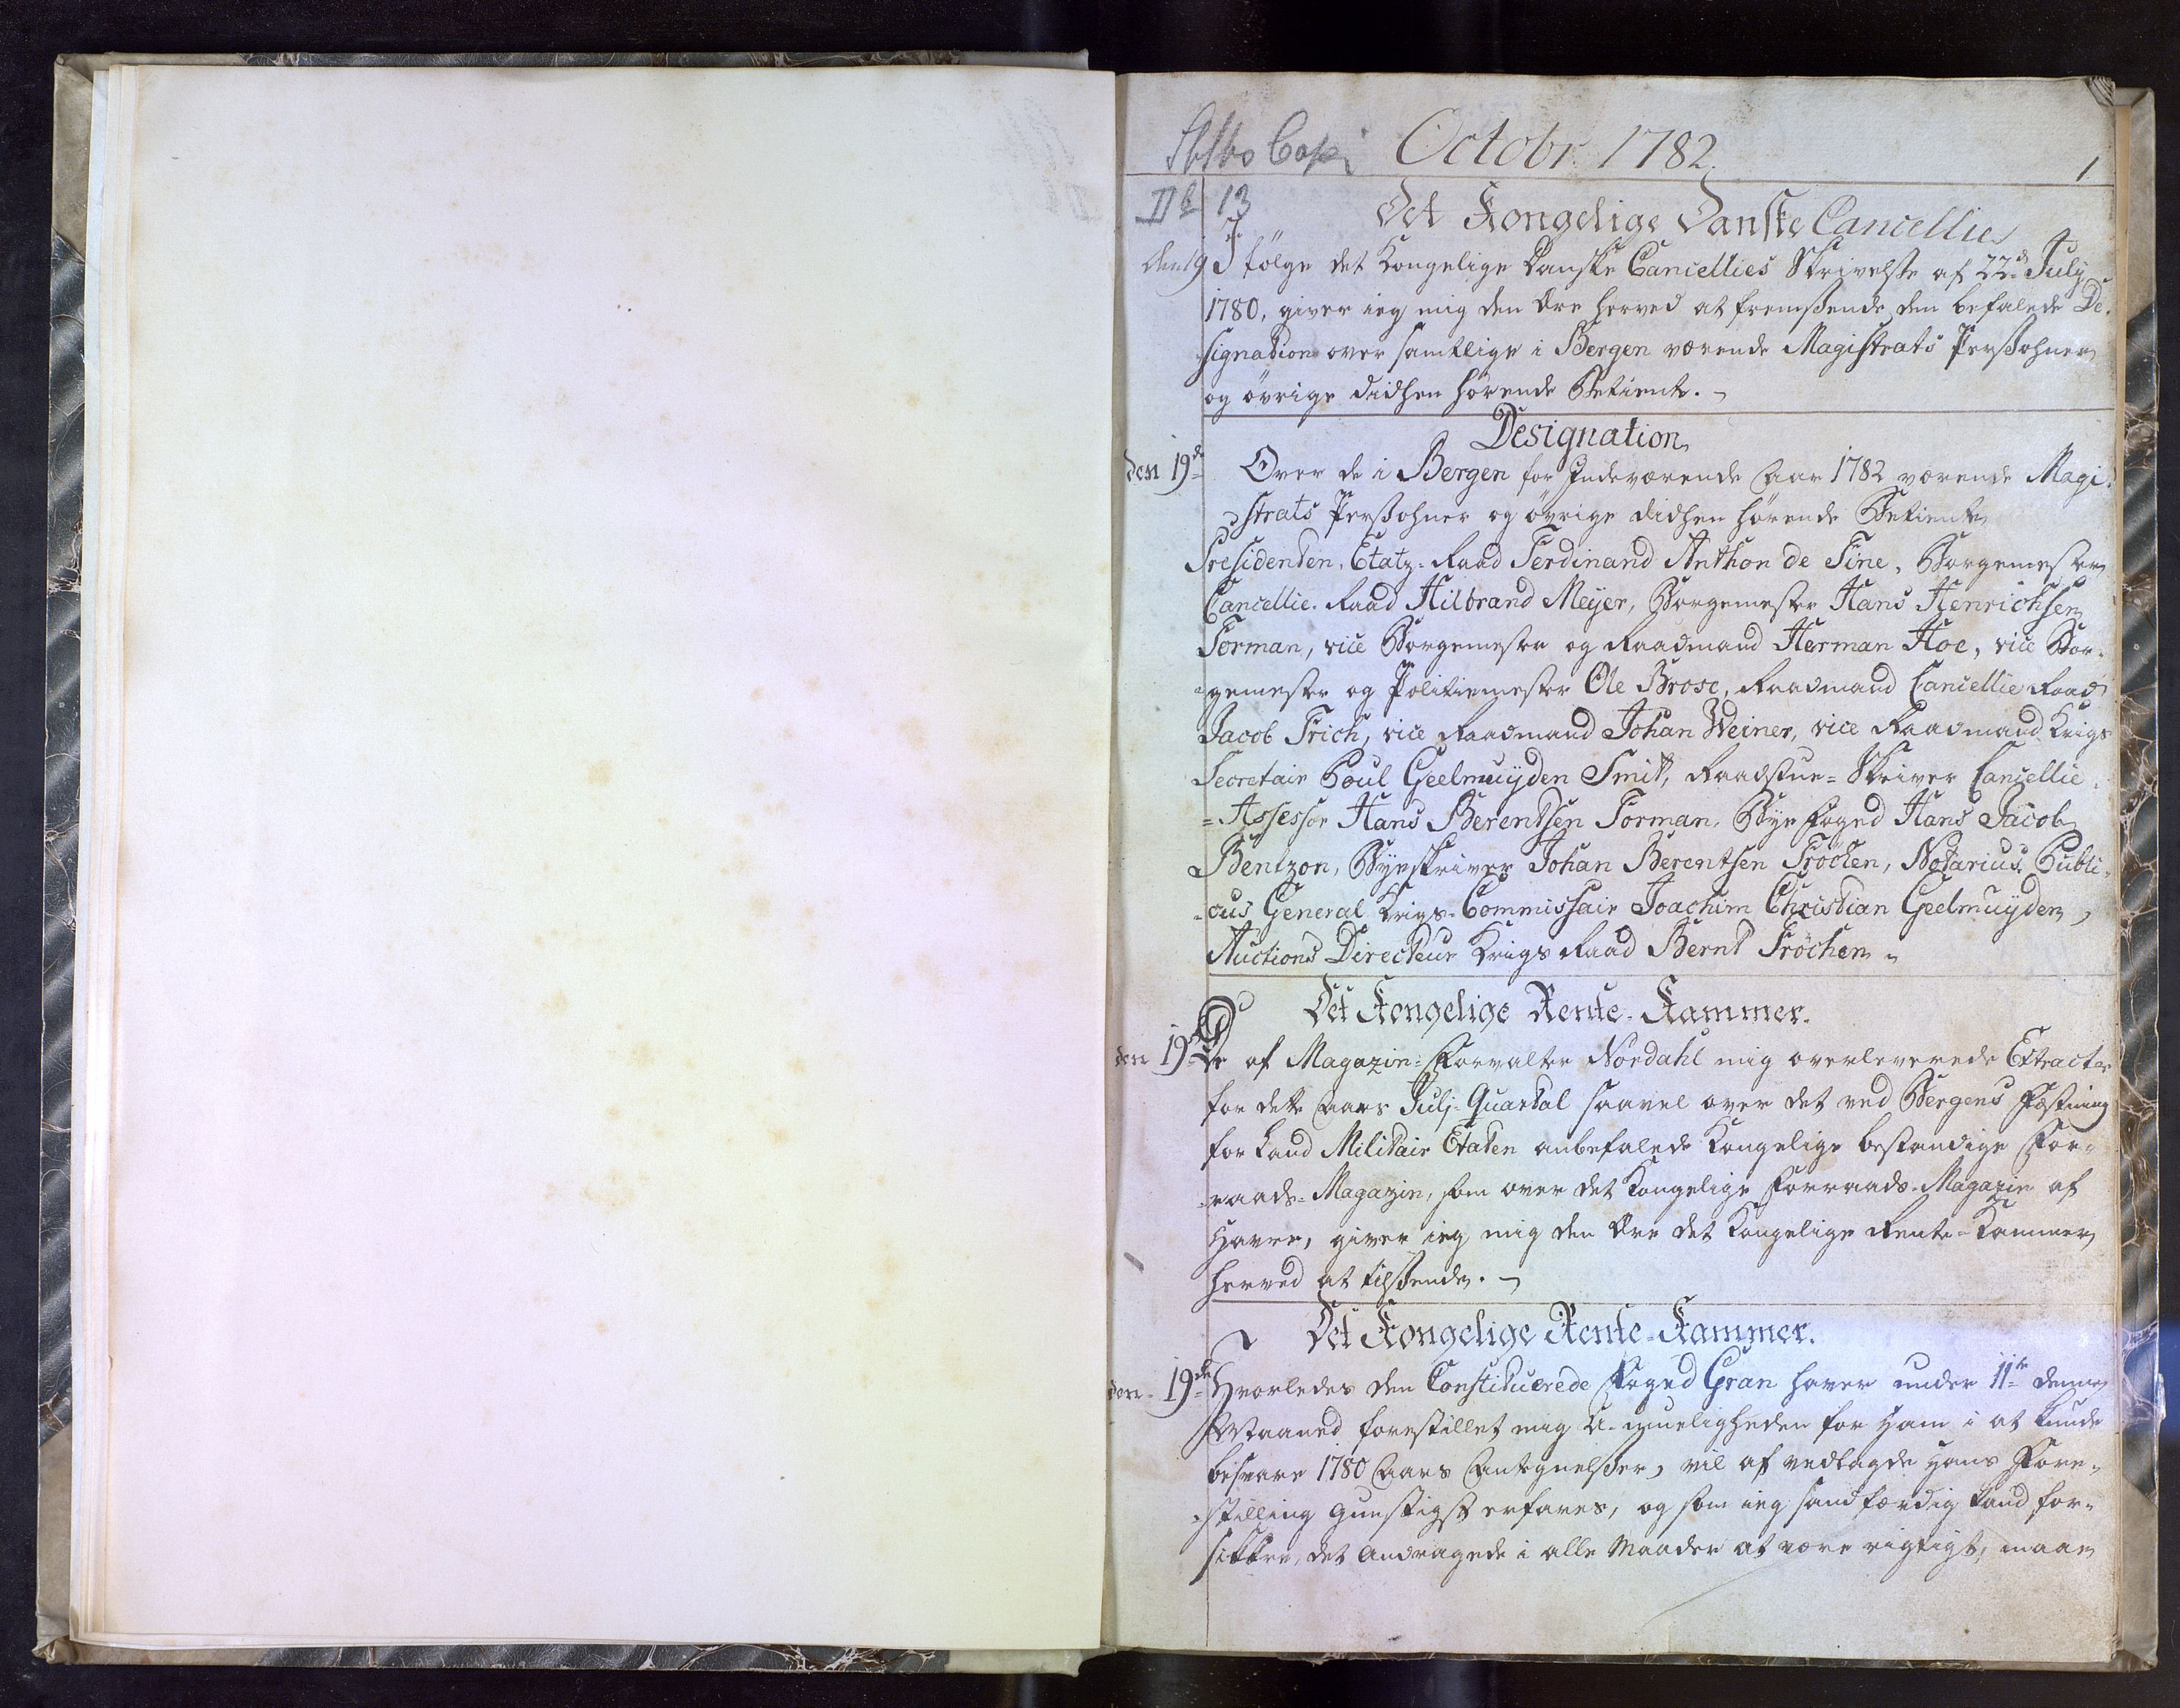 Octobr. 1782.
1
II b 13
Det Kongelige Danske Cancellie
den 19 I følge det Kongelige Danske Cancellies Skrivelse af 22de July
1780, giver ieg mig den Ære herved at fremsende den befalede De-
signation over samtlige i Bergen værende Magistrats Persohner
og øvrige didhen hørende Betiente.
Designation
den 19de Over de i Bergen for Indeværende Aar 1782 værende Magi-
strats Persohner og øvrige didhen hørende Betiente
Presidenten, Etatz-Raad Ferdinand Anthon de Fine, Borgemester
Cancellie-Raad Hilbrand Meyer, Borgemester Hans Henrichsen
Forman, vice Borgemester og Raadmand Herman Hoe, vice Bor-
gemester og Politiemester Ole Brose, Raadmand Cancellie Raad
Jacob Frich, vice Raadmand Johan Weiner, vice Raadmand Krigs
Secretair Poul Geelmuyden Smit, Raadstue-Skriver Cancellie
-Assessor Hans Berentsen Forman, Bye Foged Hans Jacob
Bentzon, Byeskriver Johan Berentsen Fröchen, Notarius Publi-
-cus General Krigs-Commissair Joachim Christian Geelmuyden,
Auctions Directeur Krigs Raad Bernt Fröchen
Det Kongelige Rente-Kammer.
den 19de De af Magazin-Forvalter Nordahl mig overleverede Extracter
for dette Aars Julj-Quartal saavel over det ved Bergens Fæstning
for Land Militair Etaten anbefalede Kongelige bestandige For-
raads-Magazin, som over det Kongelige Forraads-Magazin af
Havre, giver ieg mig den Ære det Kongelige Rente-Kammer
herved at tilsende.
Det Kongelige Rente-Kammer.
den 19de Hvorledes den Constituerede Foged Gran haver under 11te denne
Maaned forestillet mig U-mueligheden for Ham i at kunde
besvare 1780 Aars Antegnelser, vil af vedlagde Hans Fore-
-stilling gunstigst erfares, og som ieg sandfærdig kand for-
sikkre, det Andragede i alle Maader at være rigtigt, maae